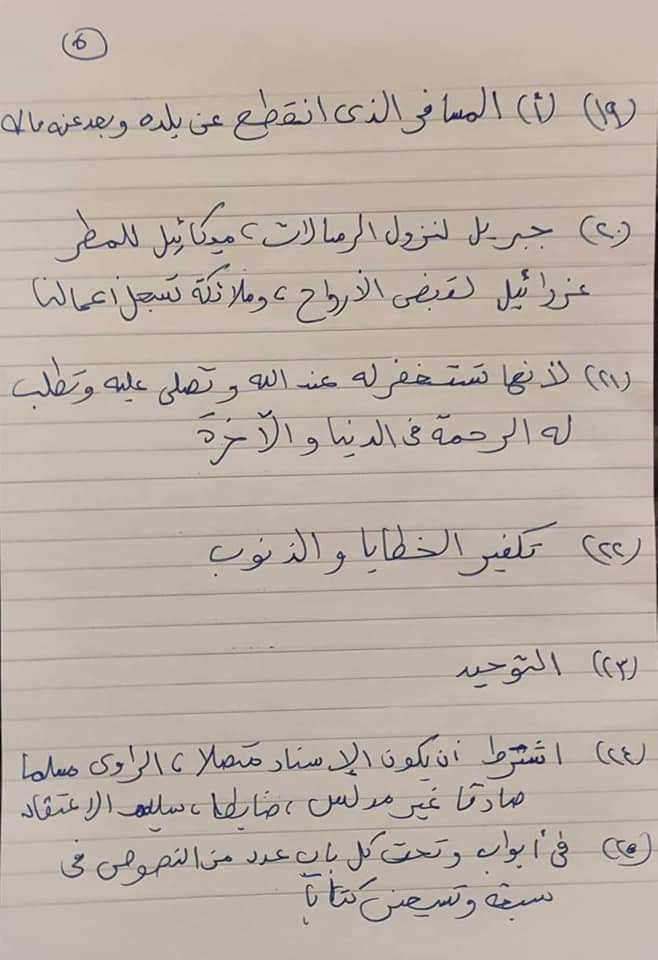 ٥
(١٩) (أ) المسافر الذى انقطع عن بلده وبعد عنه ماله
(٢٠) جبريل لنزول الرسالات، ميكائيل للمطر
عزرائيل لقبض الأرواح، وملائكة تسجل أعمالنا
(٢١) لأنها تستغفر له عند الله وتصلى عليه وتطلب
له الرحمة فى الدنيا والآخرة
(٢٢) تكفير الخطايا والذنوب
(٢٣) التوحيد
(٢٤) اشترط أن يكون الإسناد متصلا، الراوى مسلما
صادقا غير مدلس، ضابطا، سليم الاعتقاد
(٢٥) فى أبواب وتحت كل باب عدد من النصوص فى
سبعة وتسعين كتابآ